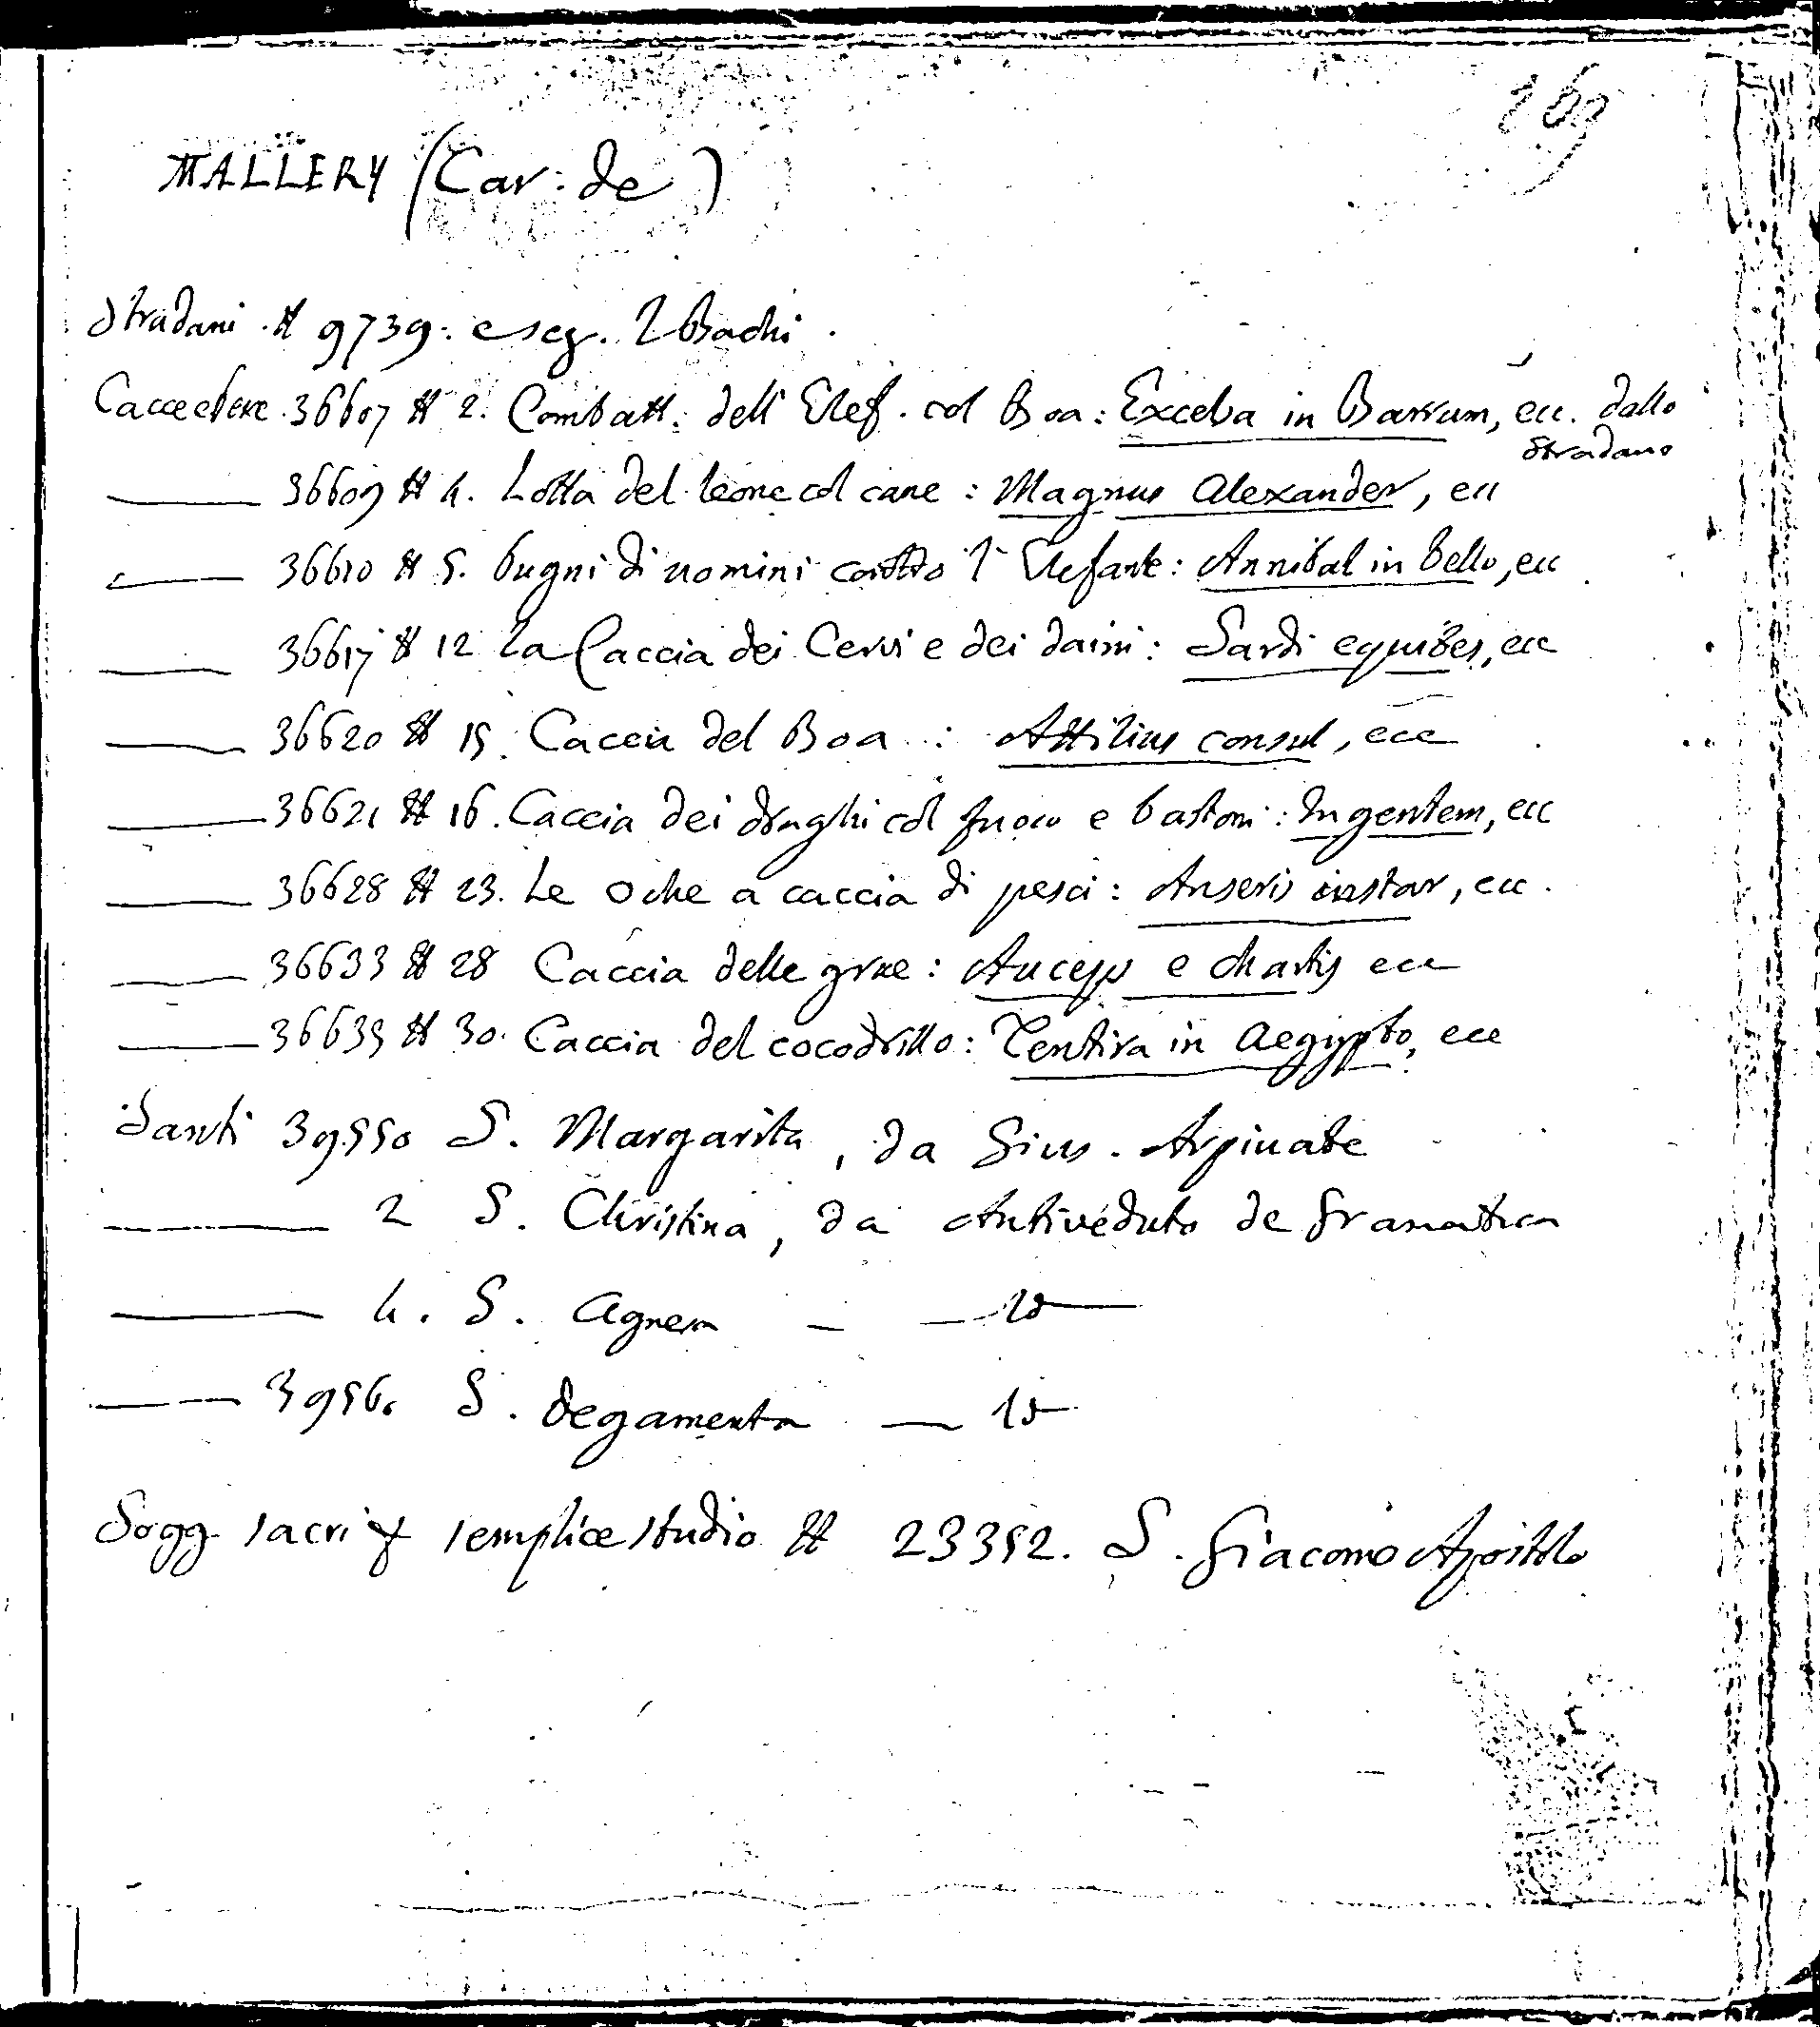 169
MALLERY (Car: de)
Stradani # 9739. e seg. I Bachi.
Cacce e fere. 36607 # 2. Combatt. dell' Elef. col Boa: Excelsa in Barrum, ecc. dallo
Stradano
36609 # 4. Lotta del leone col cane: Magnus Alexander, ecc
36610 # 5. Pugni di uomini contro l'Elefante: Annibal in bello, ecc
36617 # 12 La Caccia dei Cervi e dei daini: Sardi equites, ecc
36620 # 15. Caccia del Boa: Attilius consul, ecc
36621 # 16. Caccia dei draghi col fuoco e bastoni: Ingentem, ecc
36628 # 23. Le Oche a caccia di pesci: Anseris instar, ecc.
36633 # 28 Caccia delle grue: Auceps e chartis ecc
36635 # 30. Caccia del cocodrillo: Tentira in Aegypto, ecc
Santi 39550 S. Margarita, da Gius. Arpinate
2 S. Christina, da Antiveduto de Gramatica
4. S. Agnesa — — id —
3956. S. Degamenta — id —
Sogg. sacri di semplice studio # 23352. S. Giacomo Apostolo